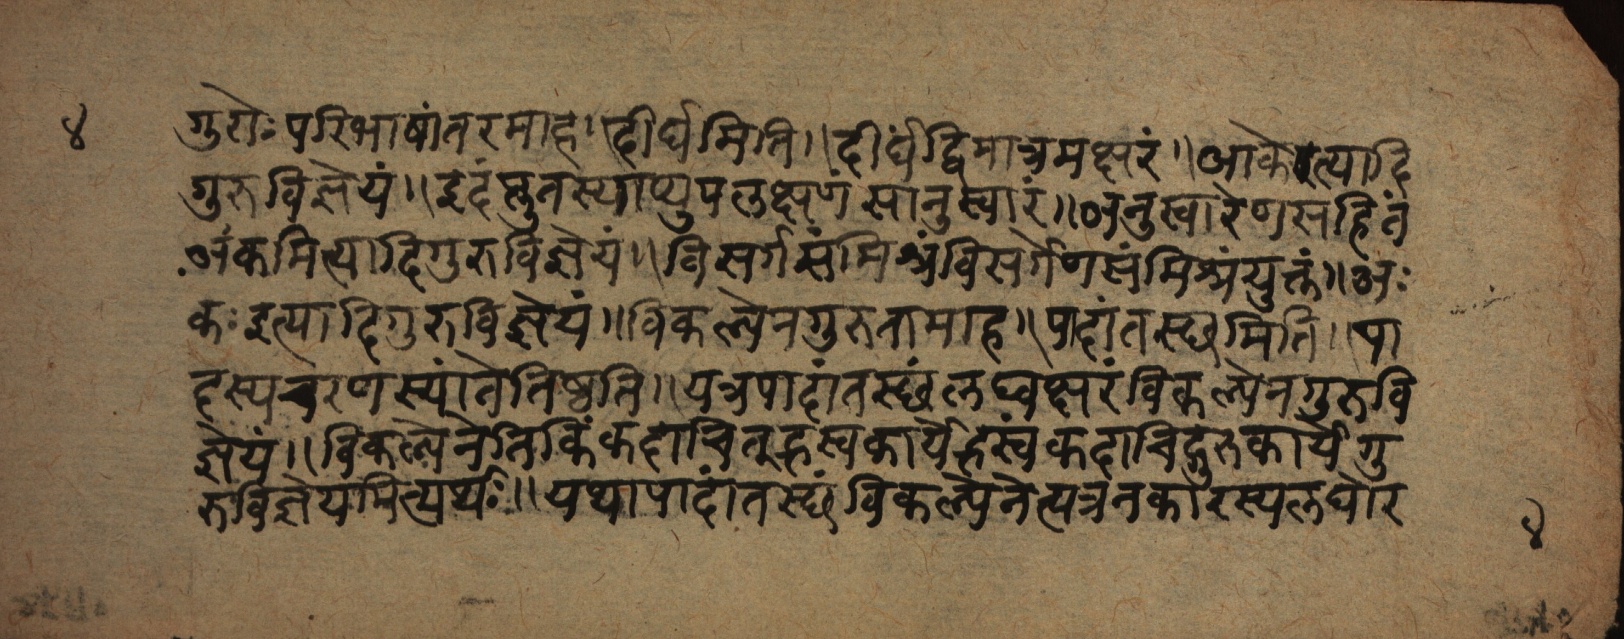 ४ गुरोः परिभाषांतरमाह। दीर्घमिति।। दीर्घंद्विमात्रमक्षरं।। आकेइत्यादि
गुरुविज्ञेयं।। इदंप्लुतस्याप्युपलक्षणं सानुस्वारं।। अनुस्वारेणसहितं
अंकमित्यादिगुरुविज्ञेयं।। विसर्गसंमिश्रंविसर्गेणसंमिश्रंयुक्तं।। अः
कः इत्यादिगुरुविज्ञेयं।। विकल्पेनगुरुतामाह।। पादांतस्थमिति।। पा
दस्यचरणस्यांतेतिष्ठति।। यत्रपादांतस्थंलघ्वक्षरंविकल्पेनगुरुवि
ज्ञेयं।। विकल्पेनेतिकिंकदाचित्ह्रस्वकार्येह्रस्वंकदाचिद्गुरुकार्येगु
रुविज्ञेयमित्यर्थः।। यथापादांतस्थंविकल्पेनेत्यत्रनकारस्यलघोर
४